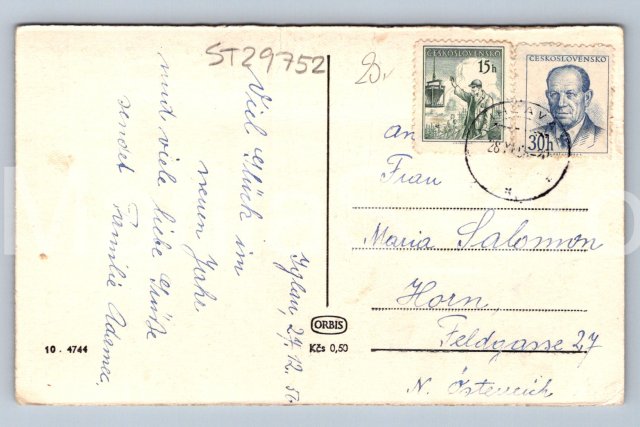 ST29752
Viel Glück im
neuen Jahr
und viele liebe Grüße
sendet Familie Adamec.
Iglau, 27.12.56.
ČESKOSLOVENSKO
15h
ČESKOSLOVENSKO
30h
an
Frau
Maria Salomon
Horn,
Feldgasse 27
N. Österreich
ORBIS
Kčs 0,50
10 . 4744